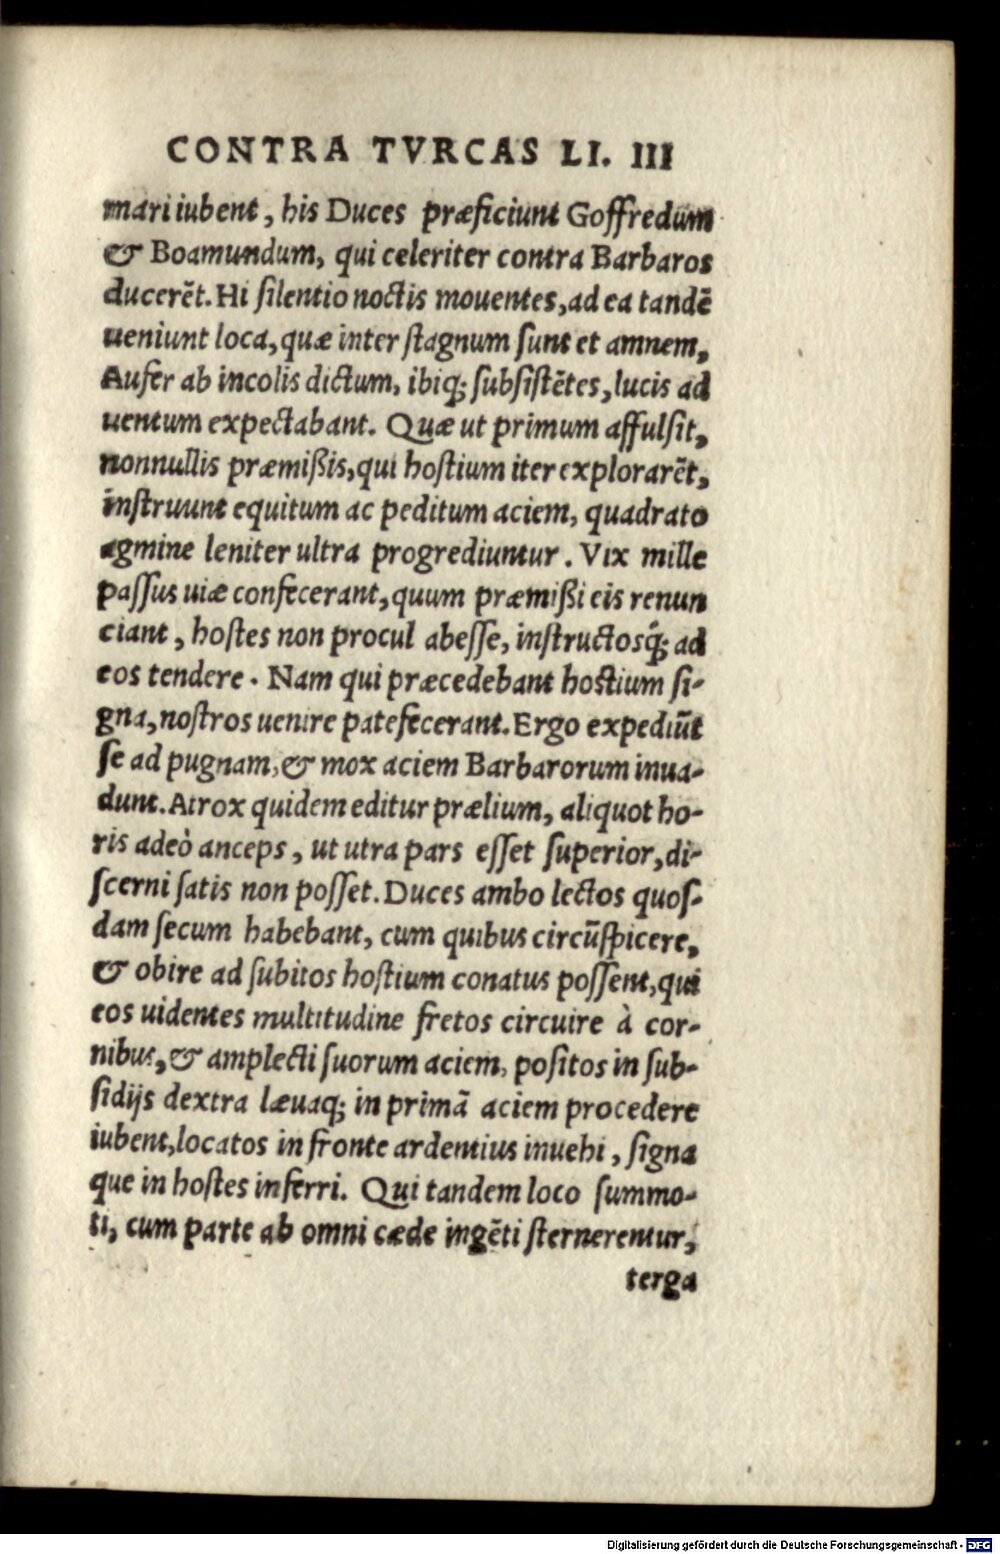 CONTRA TVRCAS LI. III
mari iubent, his Duces præficiunt Goffredum
& Boamundum, qui celeriter contra Barbaros
ducerẽt. Hi ſilentio noctis mouentes, ad ea tandẽ
ueniunt loca, quæ inter ſtagnum ſunt et amnem,
Aufer ab incolis dictum, ibiq; ſubſiſtẽtes, lucis ad
uentum expectabant. Quæ ut primum affulſit,
nonnullis præmißis, qui hoſtium iter explorarẽt,
inſtruunt equitum ac peditum aciem, quadrato
agmine leniter ultra progrediuntur. Vix mille
paſſus uiæ confecerant, quum præmißi eis renun
ciant, hoſtes non procul abeſſe, inſtructosq́; ad
eos tendere. Nam qui præcedebant hoſtium ſi-
gna, noſtros uenire patefecerant. Ergo expediũt
ſe ad pugnam, & mox aciem Barbarorum inua-
dunt. Atrox quidem editur prælium, aliquot ho-
ris adeò anceps, ut utra pars eſſet ſuperior, di-
ſcerni ſatis non poſſet. Duces ambo lectos quoſ-
dam ſecum habebant, cum quibus circũſpicere,
& obire ad ſubitos hoſtium conatus poſſent, qui
eos uidentes multitudine fretos circuire à cor-
nibus, & amplecti ſuorum aciem, poſitos in ſub-
ſidijs dextra læuaq; in primã aciem procedere
iubent, locatos in fronte ardentius inuehi, ſigna
que in hoſtes inferri. Qui tandem loco ſummo-
ti, cum parte ab omni cæde ingẽti ſternerentur,
terga
Digitalisierung gefördert durch die Deutsche Forschungsgemeinschaft - DFG